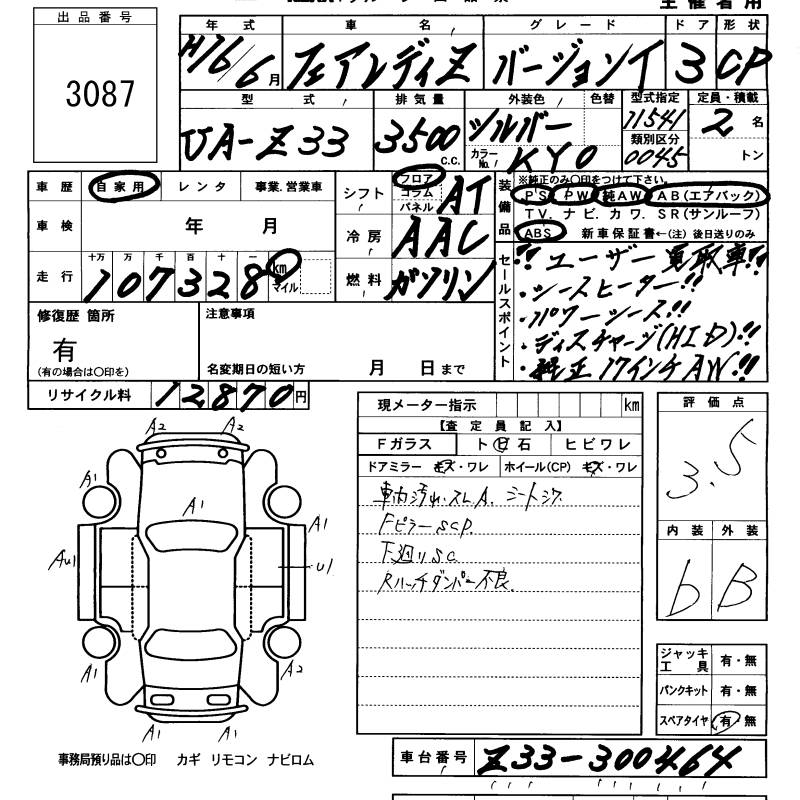 主催者用
出品番号
3087
年式 車名 グレード ドア 形状
H16/6月 フェアレディZ バージョンT 3 CP
型式 排気量 外装色 色替 型式指定 定員・積載
UA-Z33 3500 C.C. シルバー 11541 2 名
カラーNo. KY0 類別区分 0045 トン
車歴 自家用 レンタ 事業.営業車
シフト フロア コラム パネル AT
装備品 ※純正のみ〇印をつけて下さい。
P'S PW 純AW AB(エアバック)
TV. ナビ. カワ. SR(サンルーフ)
ABS 新車保証書←(注) 後日送りのみ
車検 年 月
冷房 AAC
走行 十万 万 千 百 十 一
107328 km マイル
燃料 ガソリン
セールスポイント
!! ユーザー買取車!!
・シートヒーター!!
・パワーシート!!
・ディスチャージ(HID)!!
・純正17インチAW!!
修復歴 箇所
有
(有の場合は〇印を)
注意事項
名変期日の短い方 月 日まで
リサイクル料 12870円
現メーター指示 km
【査定員記入】
Fガラス トビ石 ヒビワレ
ドアミラー キズ・ワレ ホイール(CP) キズ・ワレ
車内汚れ.スレ.A. シートシワ
Fピラーsc P.
下廻りsc
Rハッチダンパー不良.
評価点
3.5
内装 外装
b B
ジャッキ工具 有・無
パンクキット 有・無
スペアタイヤ 有・無
A2 A2
A1 A1
A1
AU1 U1
A1 A2
A1 A1
事務局預り品は〇印 カギ リモコン ナビロム
車台番号 Z33-300464